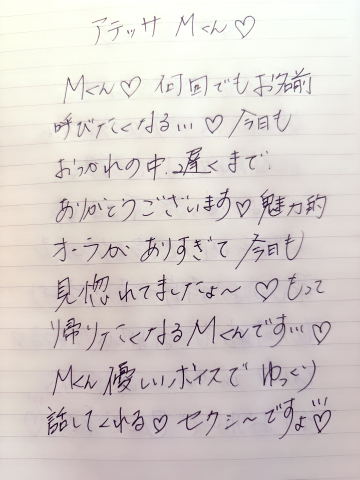 アテッサ Mくん♡
Mくん♡ 何回でもお名前
呼びたくなる…♡ 今日も
おつかれの中、遅くまで
ありがとうございます♡ 魅力的
オーラが ありすぎて 今日も
見惚れてましたよ〜 ♡ もって
帰りたくなる Mくんです…♡
Mくん 優しいボイスで ゆっくり
話してくれる♡ セクシ〜ですよ…♡